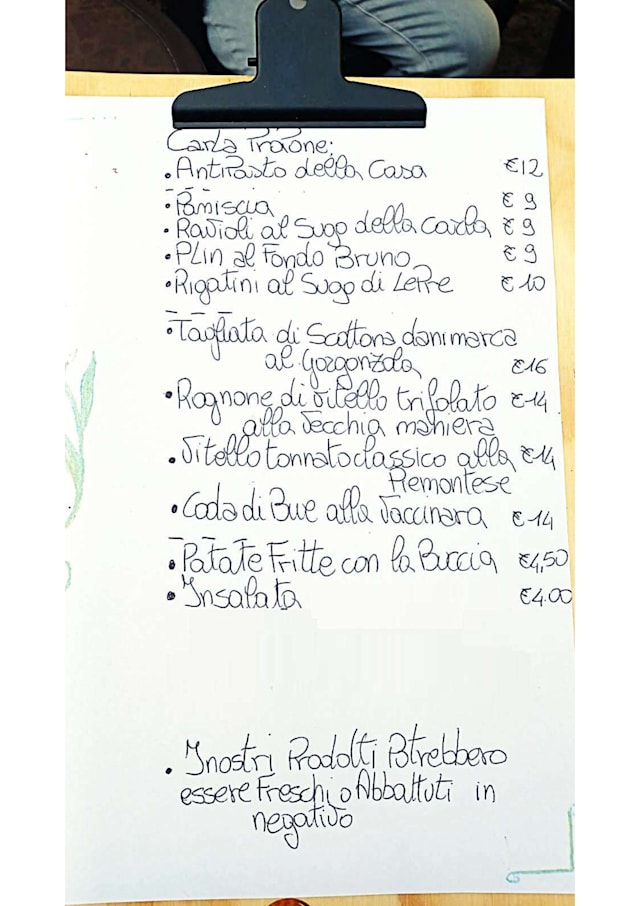 Carla Praone:
• Antipasto della Casa €12
• Paniscia €9
• Ravioli al Sugo della Carla €9
• Plin al Fondo Bruno €9
• Rigatini al Sugo di Lepre €10
• Tagliata di Scottona danimarca
al Gorgonzola €16
• Rognone di vitello trifolato €14
alla vecchia maniera
• Vitello tonnato classico alla €14
Piemontese
• Coda di Bue alla Vaccinara €14
• Patate Fritte con la Buccia €4,50
• Insalata €4.00
• I nostri Prodotti Potrebbero
essere Freschi o Abbattuti in
negativo